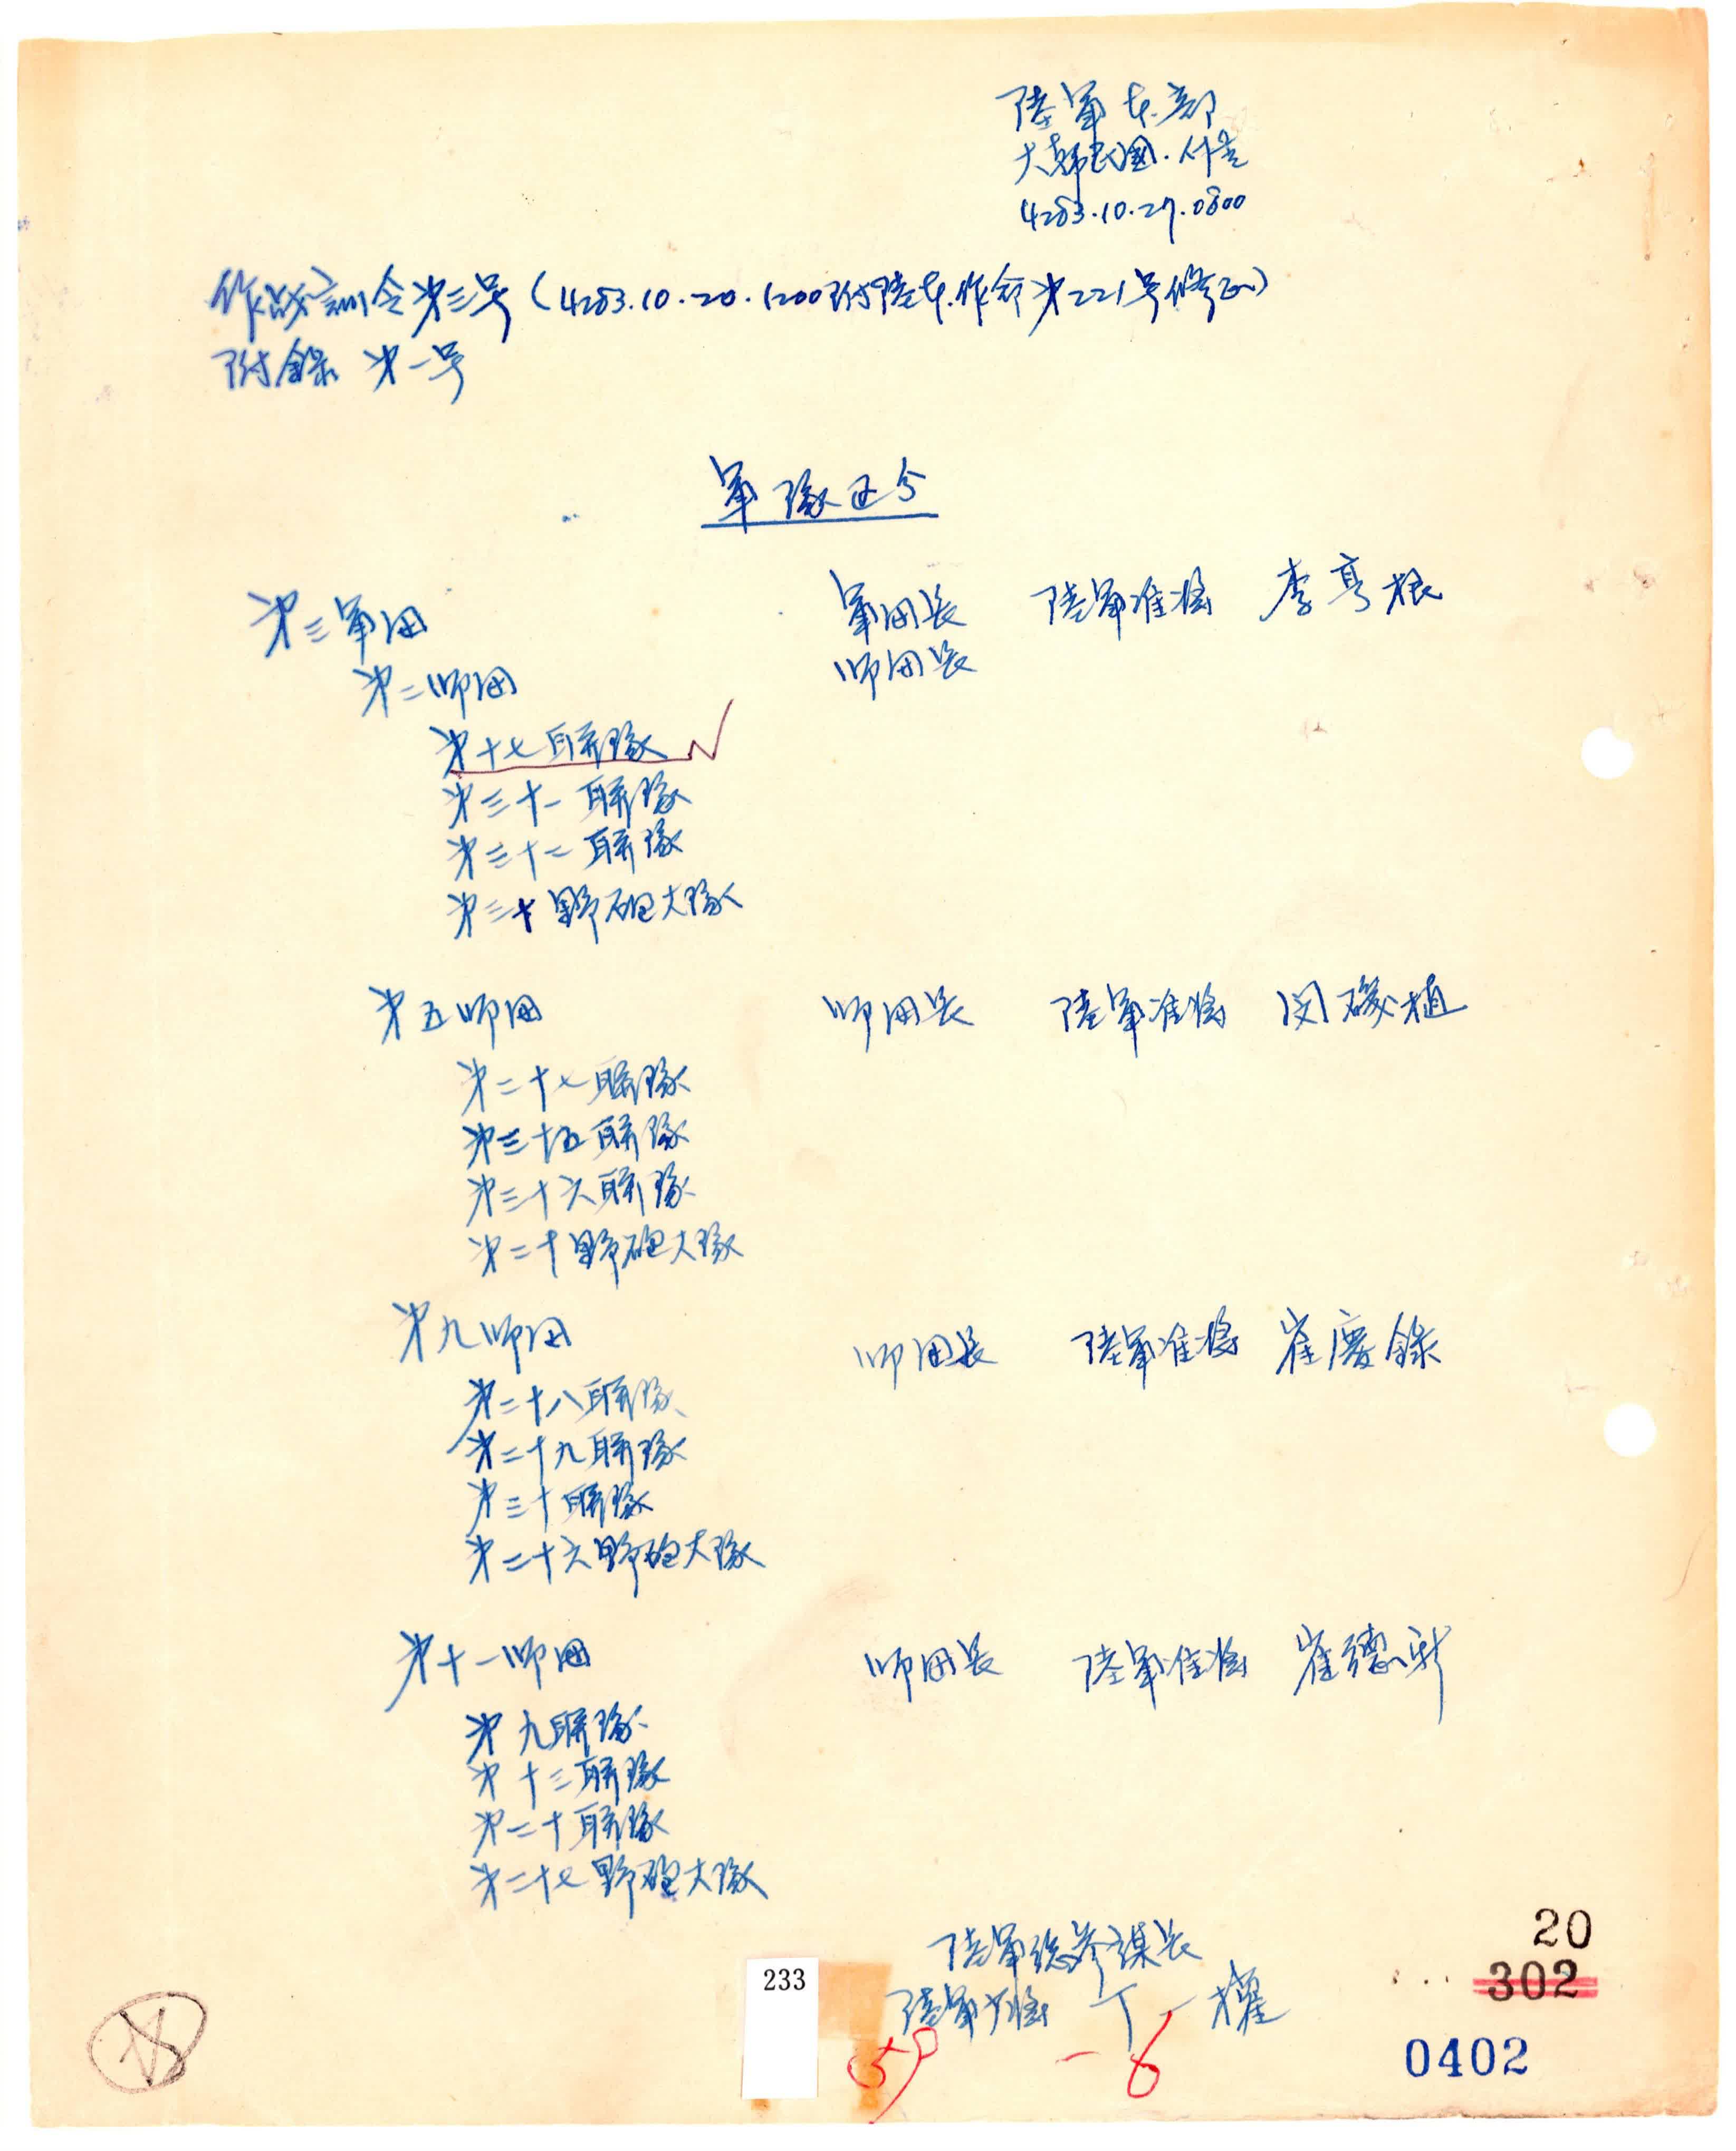 陸軍本部
大韓民國·서울
4283.10.27.0800
作战訓令第三号(4283.10.20.1200附陸本.作命第221号修正)
附錄 第一号
軍隊区分
第三軍団 軍団長 陸軍准将 李亨根
第二师団 师団長
第十七聯隊
第三十一聯隊
第三十二聯隊
第三十野砲大隊
第五师団 师団長 陸軍准将 闵磯植
第二十七聯隊
第三十五聯隊
第三十六聯隊
第二十野砲大隊
第九师団 师団長 陸軍准将 崔慶錄
第二十八聯隊
第二十九聯隊
第三十聯隊
第二十六野砲大隊
第十一师団 师団長 陸軍准将 崔德新
第九聯隊
第十三聯隊
第二十聯隊
第二十七野砲大隊
陸軍総参謀長
陸軍少将 丁一權
233
20
302
0402
59 - 6